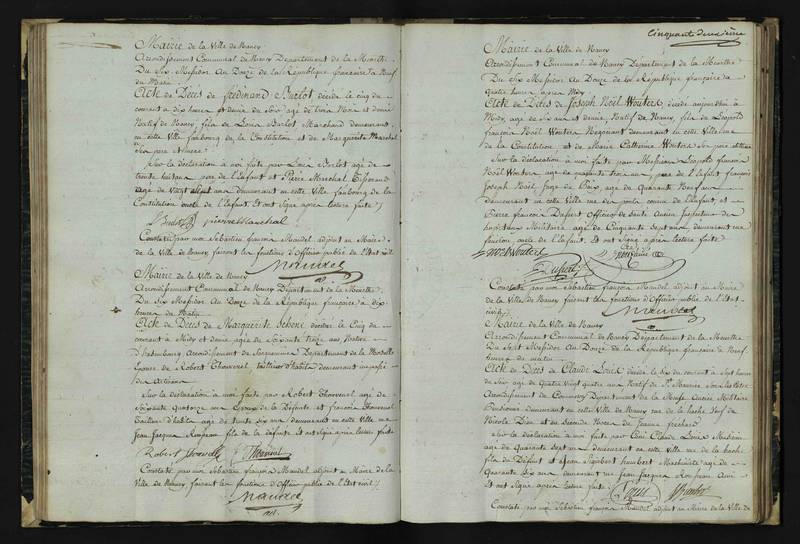 Mairie de la Ville de Nancy
Arrondissement Communal de Nancy Departement de la Meurthe
Du Six Messidor an Douze de la République française à Neuf
du Matin
Acte de Décès de ferdinand Burlot décédé le cinq du
courant à dix heures et demie du Soir agé de trois Mois et demie
Natif de Nancy, fils de Louis Burlot Marchand demeurant
en cette Ville faubourg de la Constitution et de Marguerite Marchal
Ses père et mère
Sur la déclaration à moi faite par Louis Burlot agé de
trente huit ans père de l'Enfant et Pierre Marchal
agé de Vingt sept ans demeurant en cette Ville faubourg de la
Constitution oncle de l'enfant. Et ont signé après lecture faite
Burlot pierre Marchal
Constaté par moi Sebastien françois Mandel adjoint au Maire
de la Ville de Nancy faisant les fonctions d'Officier public de l'état civil
Mandel
Mairie de la Ville de Nancy
Arrondissement Communal de Nancy Departement de la Meurthe
Du Six Messidor an Douze de la République française à dix
heures du Matin
Acte de Décès de Marguerite Schone décédée le Cinq du
courant à Midy et demie agée de Soixante treize ans Native
Arrondissement de Sarguemine Departement de la Moselle
de Robert Thouvenel tailleur d'habits demeurant
Sur la déclaration à moi faite par Robert Thouvenel agé de
Soixante quatorze ans Epoux de la Défunte et francois Thouvenel
Tailleur d'habits agé de trente six ans demeurant en cette Ville rue
Jean Jacques Rousseau fils de la défunte et ont signé après lecture faite
Robert Thouvenel
Constaté par moi Sebastien françois Mandel adjoint au Maire de la
Ville de Nancy faisant les fonctions d'Officier public de l'état civil
Mandel
adj.
Cinquante deuxième
Mairie de la Ville de Nancy
Arrondissement Communal de Nancy Departement de la Meurthe
Du Six Messidor an Douze de la République française à
quatre heures après Midy
Acte de Décès de Joseph Noël Wouters décédé aujourd'hui à
Midy, agé de Six ans et demie Natif de Nancy, fils de Léopold
françois Noël Wouters Négociant demeurant en cette Ville rue
de la Constitution et de Marie Catherine Wouters Ses père et mère
Sur la déclaration à moi faite par Messieurs Léopold francois
Noël Wouters agé de quarante trois ans, père de l'enfant françois
Joseph Noël Juge de Paix, agé de Quarante Neuf ans
demeurant en cette Ville de l'Enfant, et
Pierre francois Officier de Santé Ancien Inspecteur des
hopitaux Militaires agé de Cinquante Sept ans demeurant
oncle de l'enfant. Et ont signé après lecture faite
Noel Wouters
Constaté par moi Sebastien françois Mandel adjoint au Maire
de la Ville de Nancy faisant les fonctions d'Officier public de l'état
civil
Mandel
Mairie de la Ville de Nancy
Arrondissement Communal de Nancy Departement de la Meurthe
Du Sept Messidor an Douze de la République française à Neuf
heures du matin
Acte de Décès de Claude Louis décédé le Six du courant à Sept heures
du Soir agé de Quatre Vingt quatre ans Natif de St Maurice
Arrondissement de Commercy Departement de la Meuse Ancien Militaire
Pensionné demeurant en cette Ville de Nancy rue de la hache Veuf de
Nicole et en Seconde Noces de Jeanne
Sur la déclaration à moi faite par Claude Louis
agé de Quarante Sept ans demeurant en cette Ville rue de la hache
fils du Défunt et Jean humbert agé de
Quarante Six ans demeurant rue Jean Jacques Rousseau
Et ont signé après lecture faite
Louis
Constaté par moi Sebastien françois Mandel adjoint au Maire de la Ville de